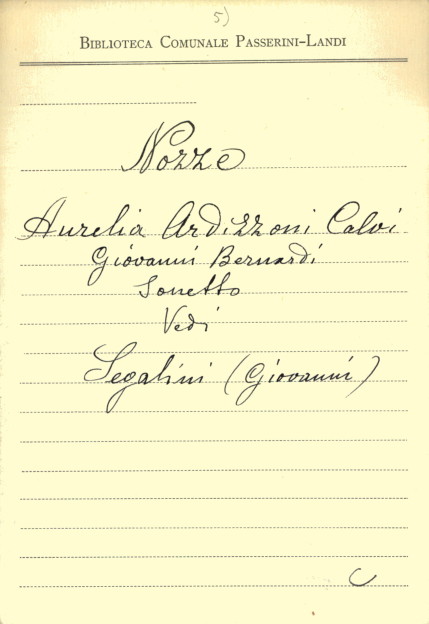 5)
BIBLIOTECA COMUNALE PASSERINI-LANDI
Nozze
Aurelia Ardizzoni Calvi
Giovanni Bernardi
Sonetto
Vedi
Segalini (Giovanni)
C